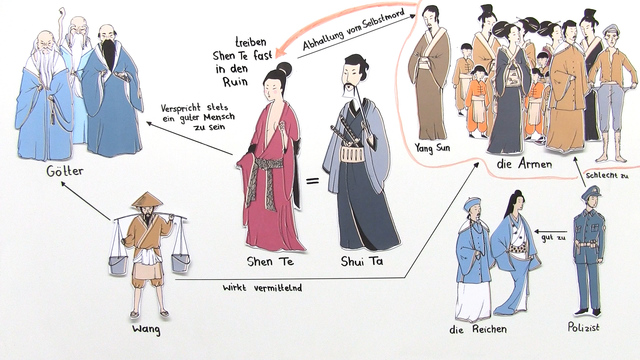 treiben
Shen Te fast
in den
Ruin
Abhaltung vom Selbstmord
Verspricht stets
ein guter Mensch
zu sein
Götter
Yang Sun
die Armen
schlecht zu
=
Shen Te
Shui Ta
gut zu
Wirkt vermittelnd
Wang
die Reichen
Polizist